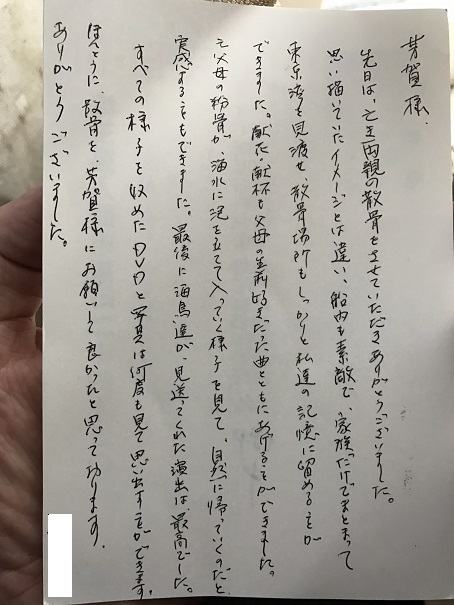 芳賀様、
先日は、亡き両親の散骨をさせていただきありがとうございました。
思い描いていたイメージとは違い、船内も素敵で、家族だけでまとまって
東京湾を見渡せ、散骨場所もしっかりと私達の記憶に留めることが
できました。献花・献杯も父母の生前好きだった曲とともにあげることができました。
父母の粉骨が、海水に泡を立てて入っていく様子を見て、自然に帰っていくのだと
実感することもできました。最後に海鳥達が、見送ってくれた演出は、最高でした。
すべての様子を収めたDVDと写真は何度も見て思い出すことができます。
ほんとうに、散骨を、芳賀様にお願いして良かったと思って
ありがとうございました。